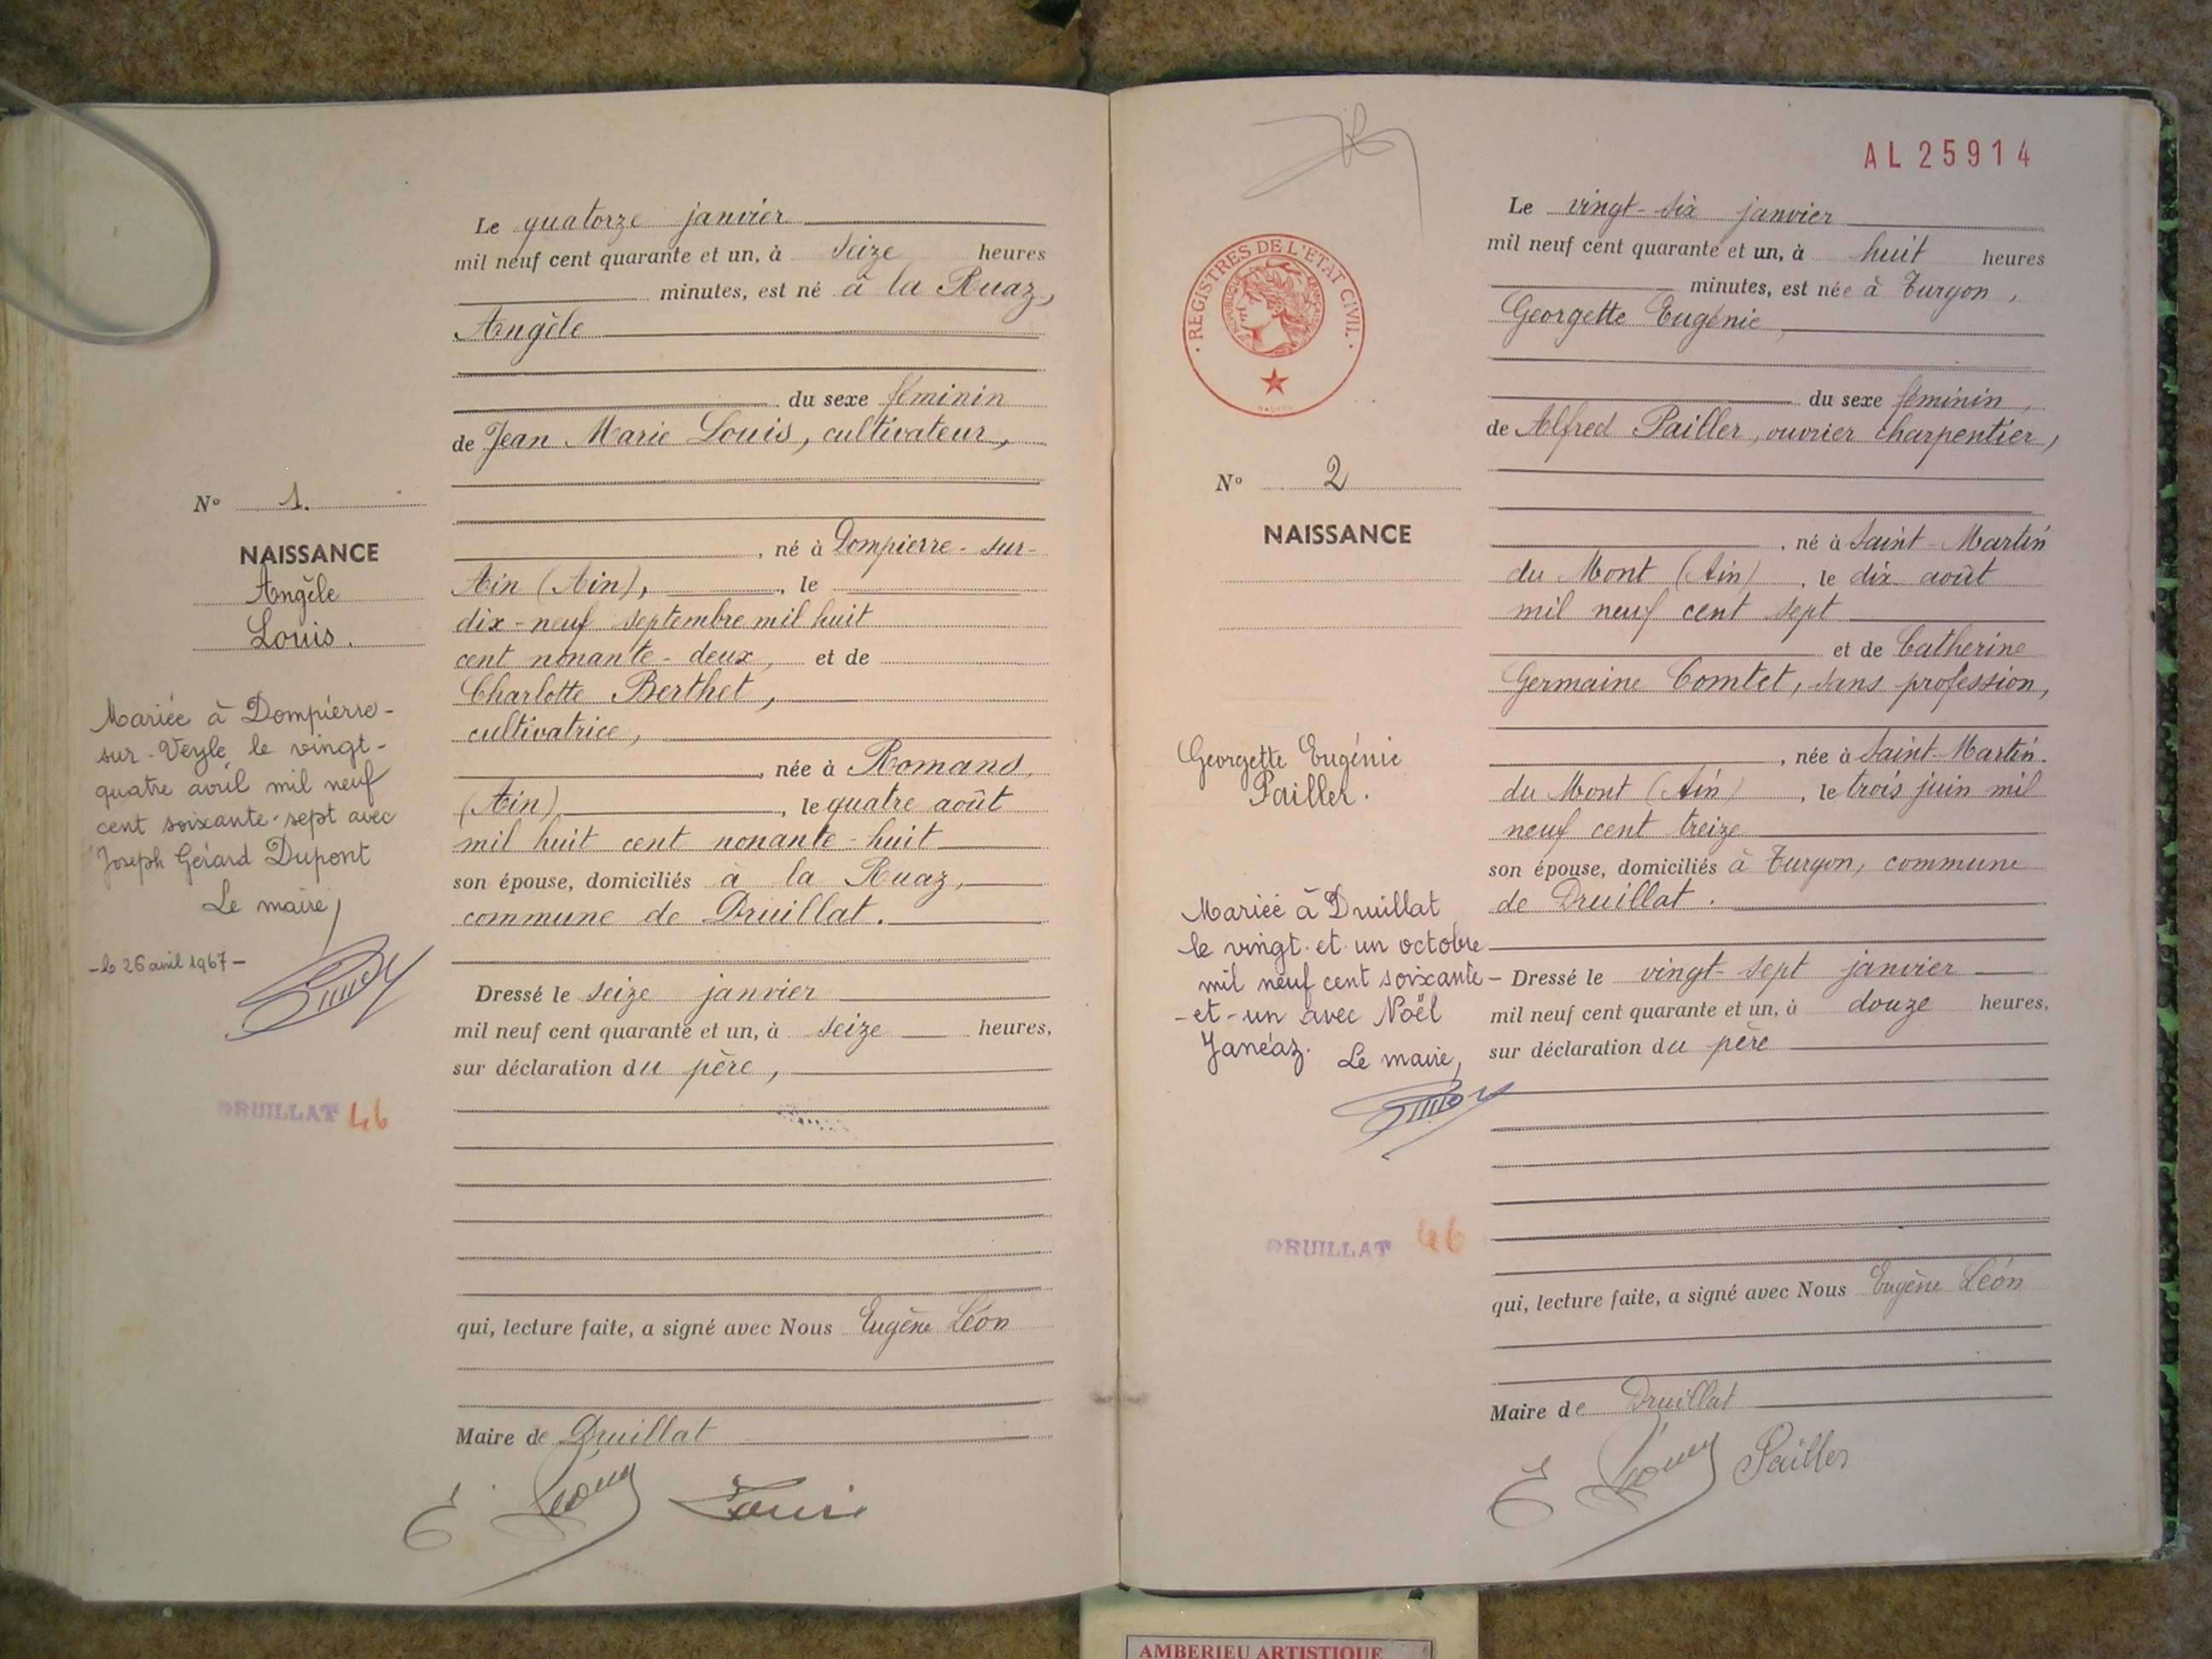 Le quatorze janvier
mil neuf cent quarante et un, à seize heures
minutes, est né à la Ruaz,
Angèle
du sexe féminin
de Jean Marie Louis, cultivateur,
, né à Dompierre-sur-
Ain (Ain), , le
dix-neuf septembre mil huit
cent nonante-deux, et de
Charlotte Berthet,
cultivatrice,
, née à Romans,
(Ain), , le quatre août
mil huit cent nonante-huit
son épouse, domiciliés à la Ruaz,
commune de Druillat.
Dressé le seize janvier
mil neuf cent quarante et un, à seize heures,
sur déclaration du père,
qui, lecture faite, a signé avec Nous Eugène Léon
Maire de Druillat
E Léon Louis
No 1.
NAISSANCE
Angèle
Louis.
Mariée à Dompierre-
sur-Veyle le vingt-
quatre avril mil neuf
cent soixante-sept avec
Joseph Gérard Dupont
Le maire,
-le 26 avril 1967-
DRUILLAT 46
AL25914
Le vingt-six janvier
mil neuf cent quarante et un, à huit heures
minutes, est née à Turgon,
Georgette Eugénie,
du sexe féminin,
de Alfred Pailler, ouvrier charpentier,
, né à Saint-Martin
du Mont (Ain) , le dix août
mil neuf cent sept
et de Catherine
Germaine Comtet, sans profession,
, née à Saint-Martin.
du Mont (Ain) , le trois juin mil
neuf cent treize
son épouse, domiciliés à Turgon, commune
de Druillat.
Dressé le vingt-sept janvier
mil neuf cent quarante et un, à douze heures,
sur déclaration du père
qui, lecture faite, a signé avec Nous Eugène Léon
Maire de Druillat
E Léon Pailler
· REGISTRES DE L'ETAT CIVIL ·
REPUBLIQUE FRANÇAISE
No 2
NAISSANCE
Georgette Eugénie
Pailler.
Mariée à Druillat
le vingt-et-un octobre
mil neuf cent soixante-
-et-un avec Noël
Janéaz. Le maire,
DRUILLAT 46
AMBERIEU ARTISTIQUE